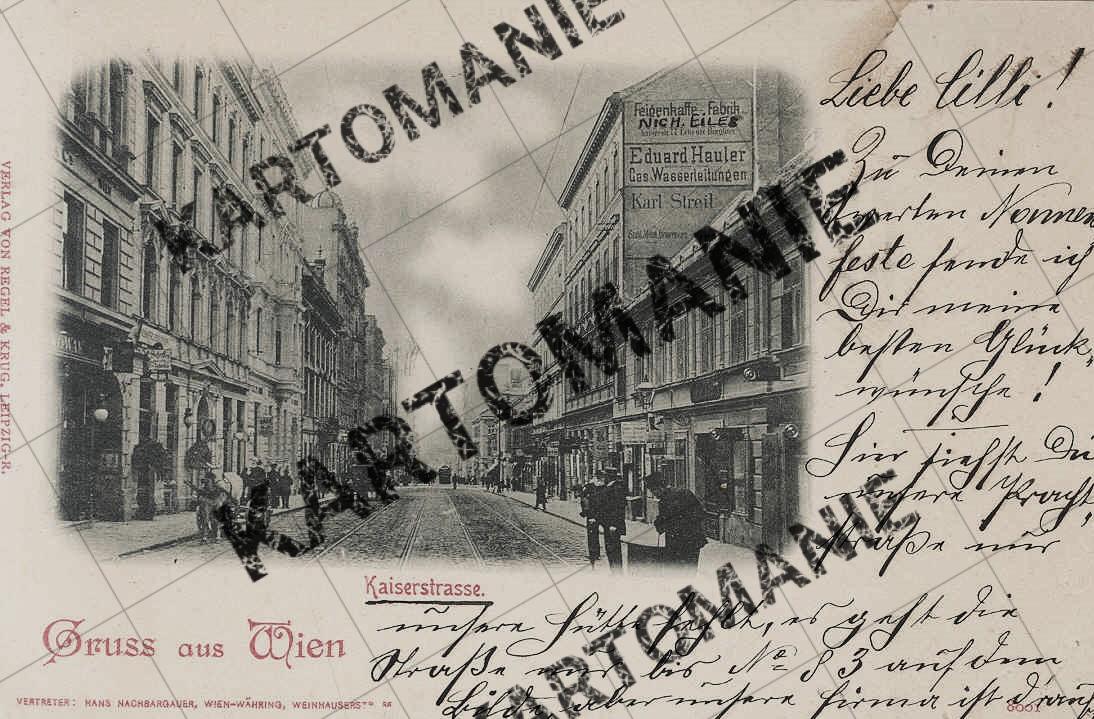 VERLAG VON REGEL & KRUG, LEIPZIG-R.
Feigenkaffe-Fabrik
NICH. EILES
Eduard Hauler
Gas Wasserleitungen
Karl Streit
Liebe Cilli!
Zu Deinem
werten Namens
feste sende ich
Dir meine
besten Glück-
wünsche!
Hier siehst Du
unsere Pracht
straße nur
unsere Hütte fehlt, es geht die
Straße nur bis No 83 auf dem
Bilde, aber unsere Firma ist drauf
Kaiserstrasse.
Gruss aus Wien
VERTRETER: HANS NACHBARGAUER, WIEN-WÄHRING, WEINHAUSERSTR
KARTOMANIE
KARTOMANIE
KARTOMANIE